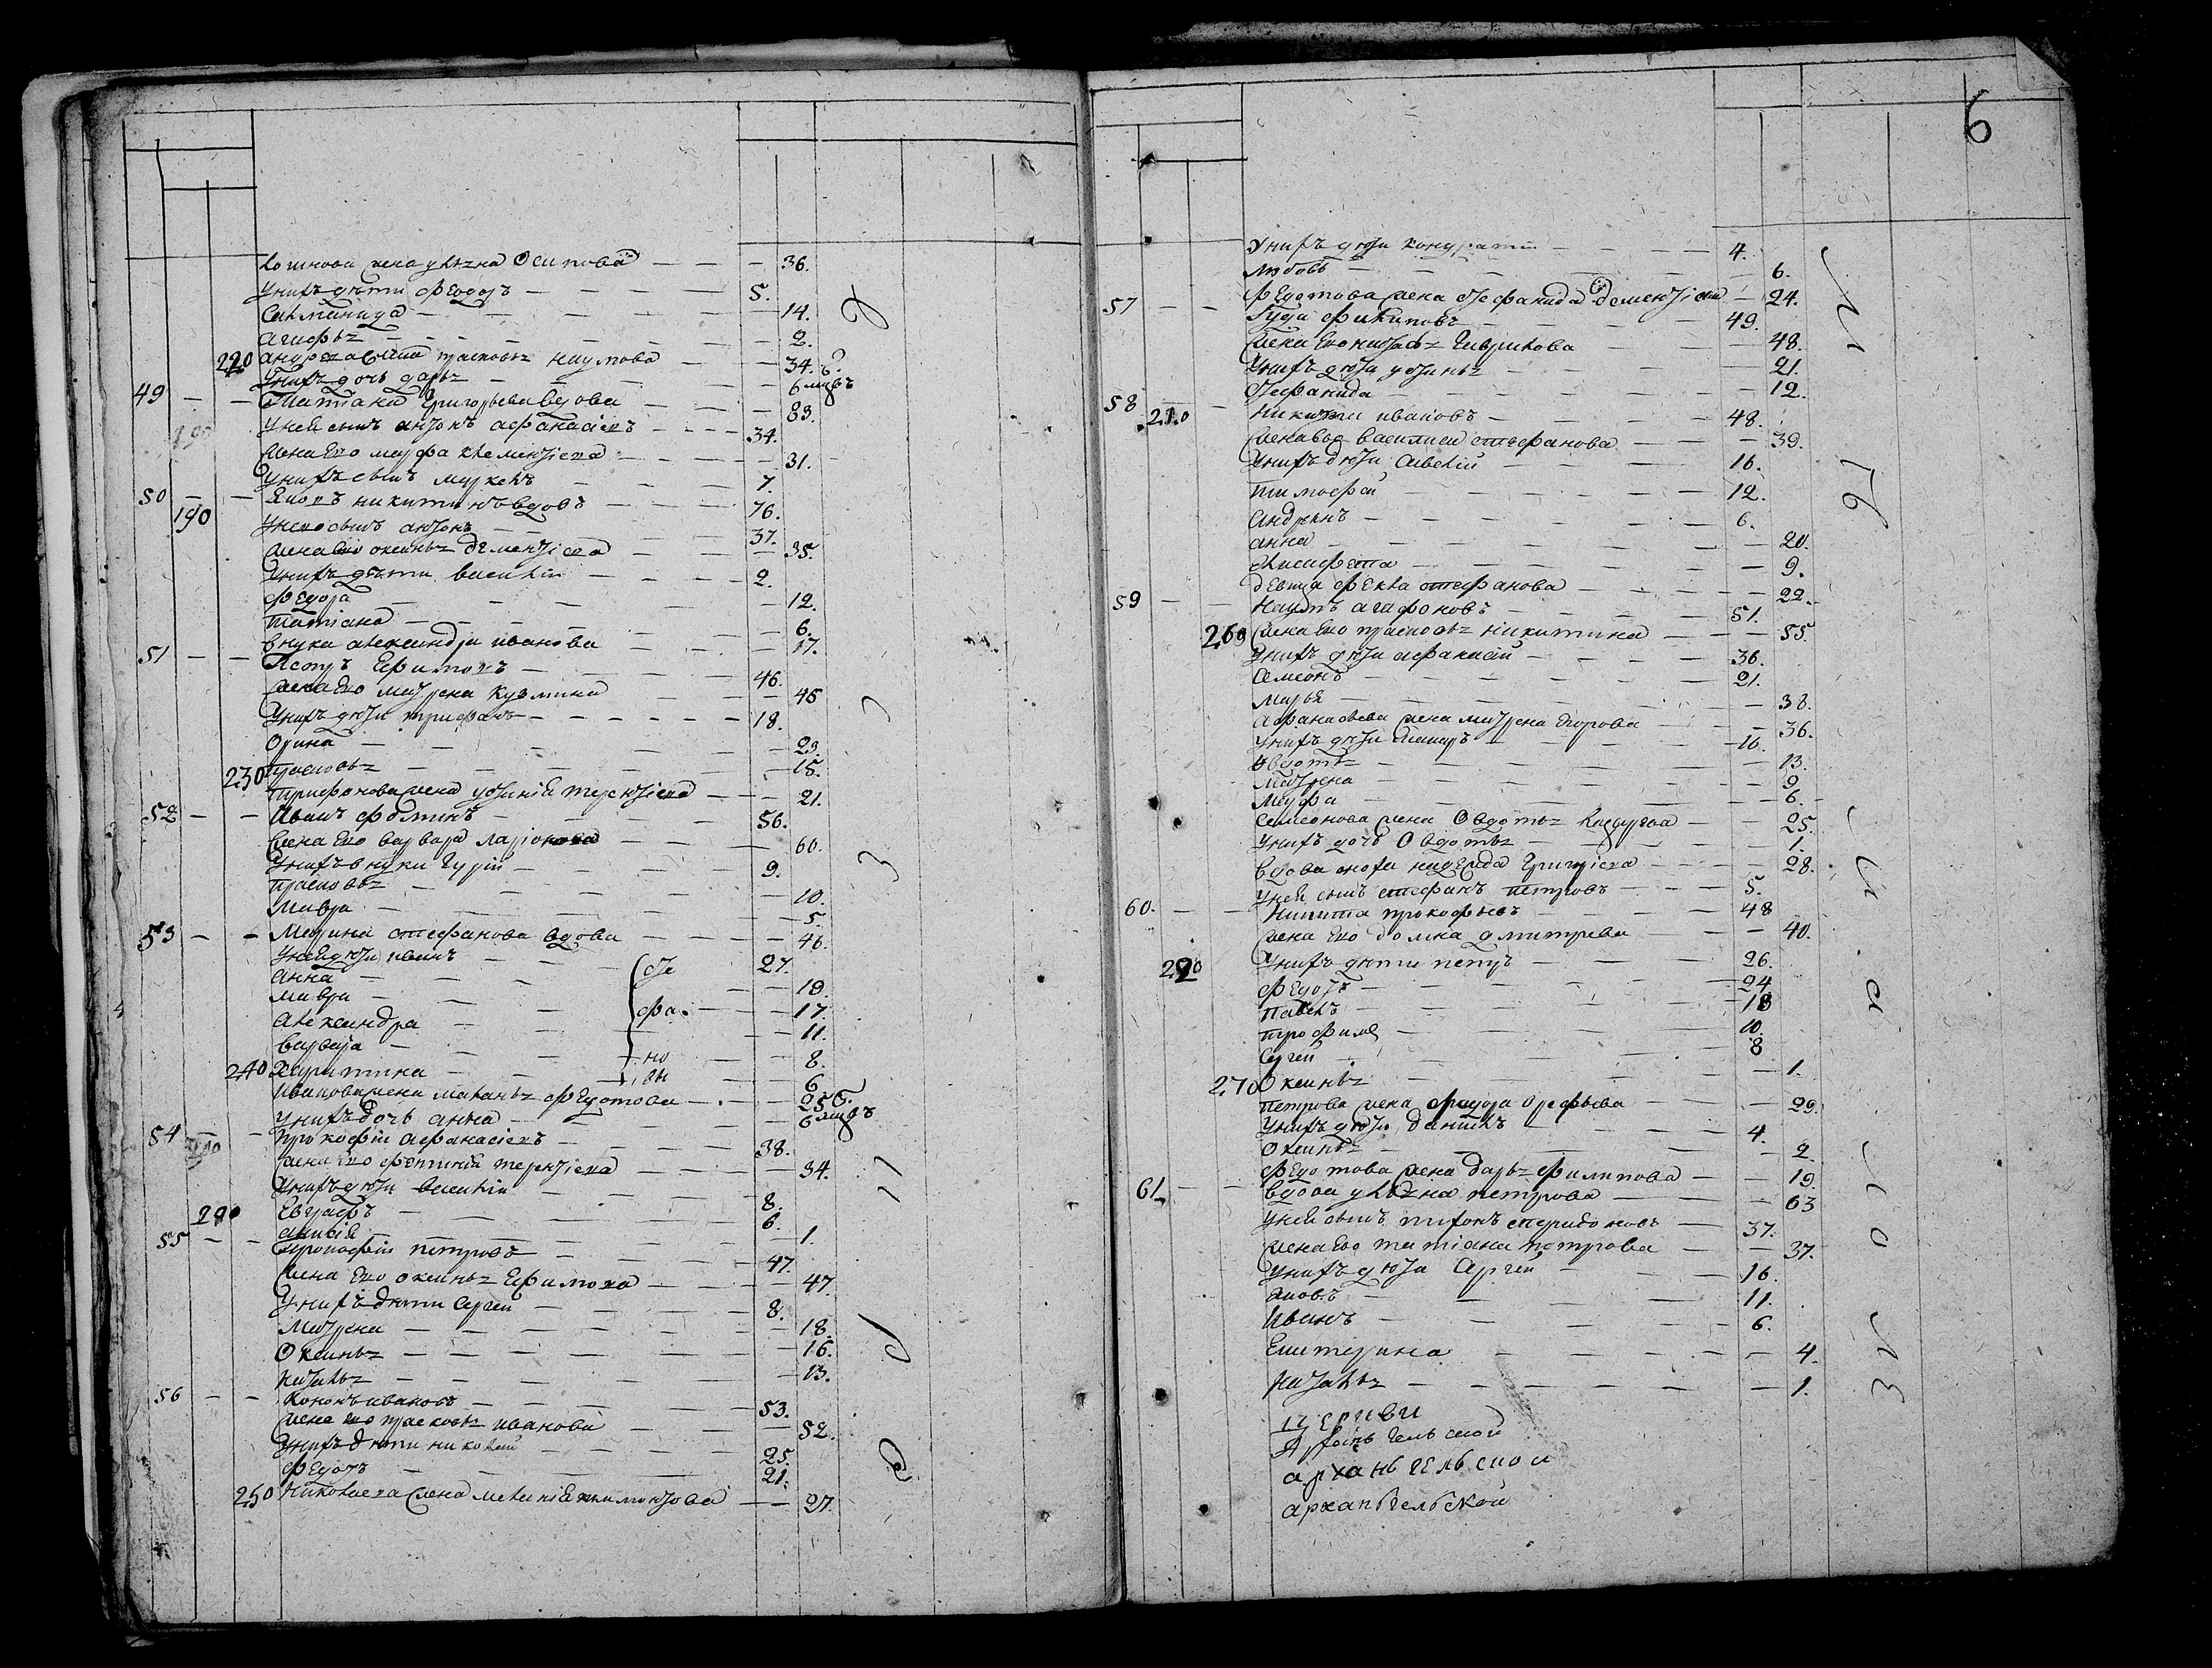 жена ульяна Осипова — 36.
У нихъ дѣти Феодоръ — 5.
14.
Агафья — 2.
220 Андреева жена прасковья наумова — 34.
У нихъ дочь дарья — 6
49 — Татиана Григорьева вдова — 83.
У ней сынъ антонъ афанасіевъ — 34.
жена Его марфа клементіева — 31.
У нихъ сынъ маркелъ — 7.
50 — Яковъ никитинъ вдовъ — 76.
190 У него сынъ антонъ — 37.
жена Его оксинья дементіева — 35.
У нихъ дѣти василии — 2.
Федора — 12.
татиана — 6.
внука александра иванова — 17.
51 — Петръ Ефимовъ — 46.
жена Его матрена кузмина — 45
У нихъ дѣти трифанъ — 18.
Орина — 23.
230 прасковья — 15.
трифанова жена устиніа терентіева — 21.
52 — Иванъ фоминъ — 56.
жена Его варвара ларіонова — 60.
У нихъ внуки гурій — 9.
прасковья — 10.
мавра — 5.
53 — Марина стефанова вдова — 46.
У ней дѣти иванъ — сте 27.
анна — 19.
мавра — фа. — 17.
александра — 11.
варвара — но — 8.
240 Харитина — вы — 6
иванова жена маланья федотова — 25
У нихъ дочь анна — 6
54 — прокофіи афанасіевъ — 38.
жена Его фетиніа терентіева — 34.
У нихъ дѣти василіи — 8.
200 Евграфъ — 6.
— 1.
55 — прокофіи петровъ — 47.
жена Его оксинья Ефимова — 47.
У нихъ дѣти сергеи — 8.
Матрена — 18.
Оксинья — 16.
наталья — 13.
56 — Кононъ ивановъ — 53.
жена его прасковья иванова — 52.
У нихъ дѣти николаи — 25.
Федотъ — 21.
250 Николаева жена меланіа — 27.
6
У нихъ дѣти кондратіи — 4.
любовь — 6.
Федотова жена стефанида дементіева — 24.
57 — Гуда филиповъ — 49.
жена Его наталья гаврилова — 48.
У нихъ дѣти устинья — 21.
стефанида — 12.
58 — 210 никита ивановъ — 48.
жена Ево василиса стефанова — 39.
У нихъ дѣти савелій — 16.
тимофеи — 12.
андреянъ — 6.
анна — 20.
— 9.
девица фекла стефанова — 22.
59 — Наумъ агафоновъ — 51.
260 жена Его прасковья никитина — 55.
У нихъ дѣти афанасіи — 36.
семеонъ — 21.
марья — 38.
афанасьева жена матрена Егорова — 36.
У нихъ дѣти — 16.
авдотья — 13.
матрена — 9
марфа — 6.
семеонова жена Овдотья — 25.
У нихъ дочь Овдотья — 1.
вдова сноха надежда григоріева — 28.
У ней сынъ стефанъ петровъ — 5.
60. — никита прокофьевъ — 48
жена Его домна дмитриева — 40.
220 У нихъ дѣти петръ — 26.
федотъ — 24
павелъ — 18
трофимъ — 10.
сергеи — 8
270 Оксинья — 1.
петрова жена федора орефьева — 29.
У нихъ дѣти данилъ — 4.
Оксинья — 2.
федотова жена дарья филипова — 19.
61. — вдова ульяна петрова — 63
У ней сынъ тихонъ спиридоновъ — 37.
жена Его татиана петрова — 37.
У нихъ дѣти сергеи — 16.
яковъ — 11.
Иванъ — 6.
Екатерина — 4.
Наталья — 1.
церкви
архангельской
архангельской